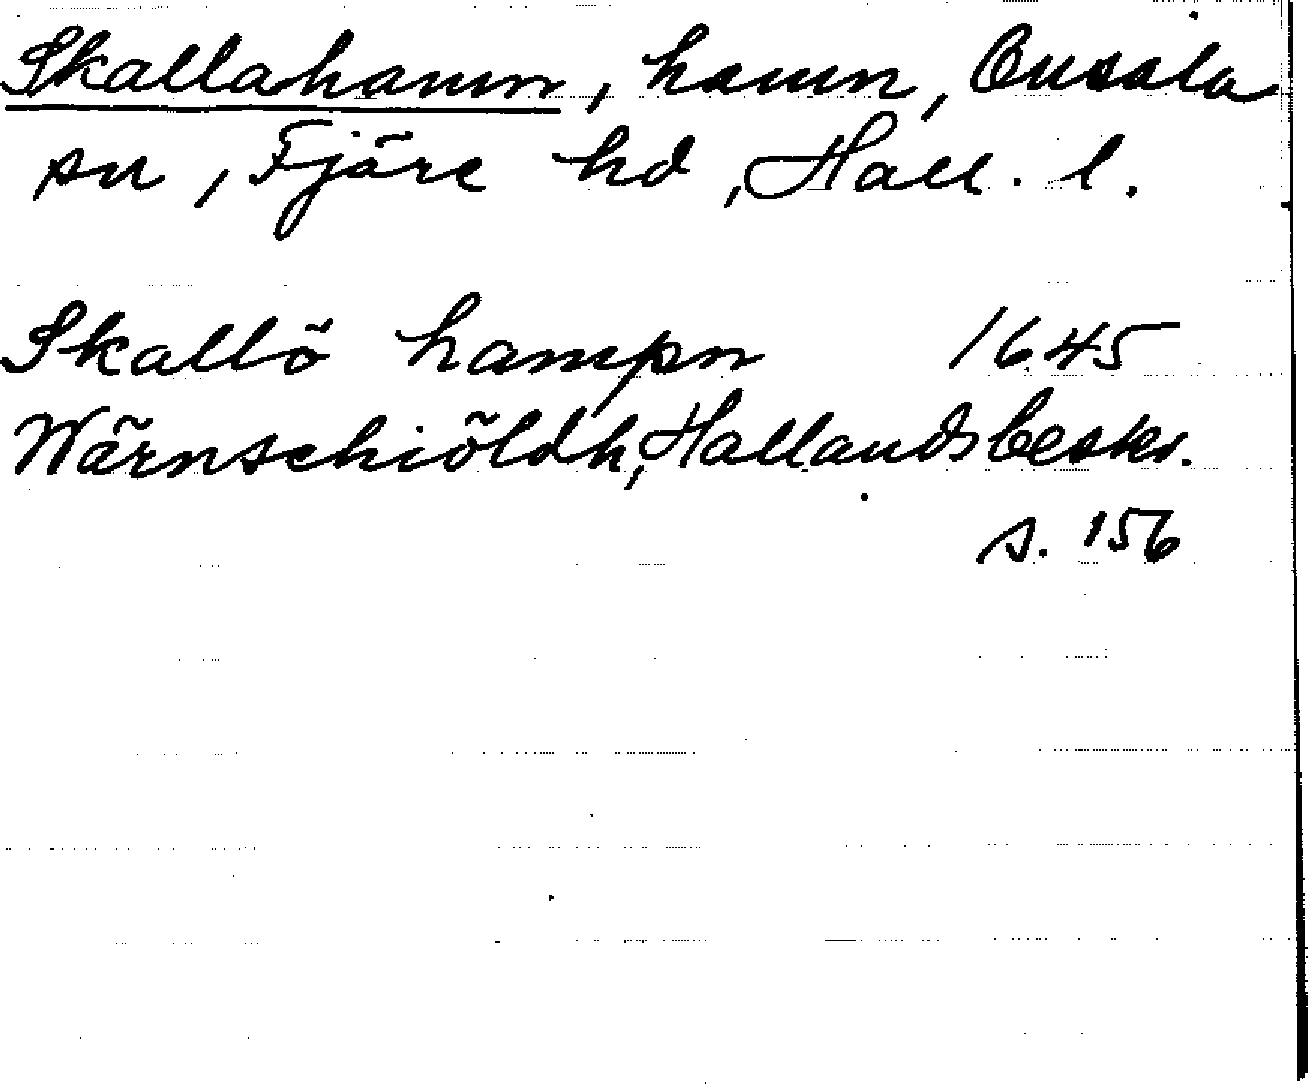 Skallahamn, hamn, Onsala
sn, Fjäre hd, Hall. l.
Skallö hampn 1645
Wärnschiöldh, Hallandsbeskr.
s. 156